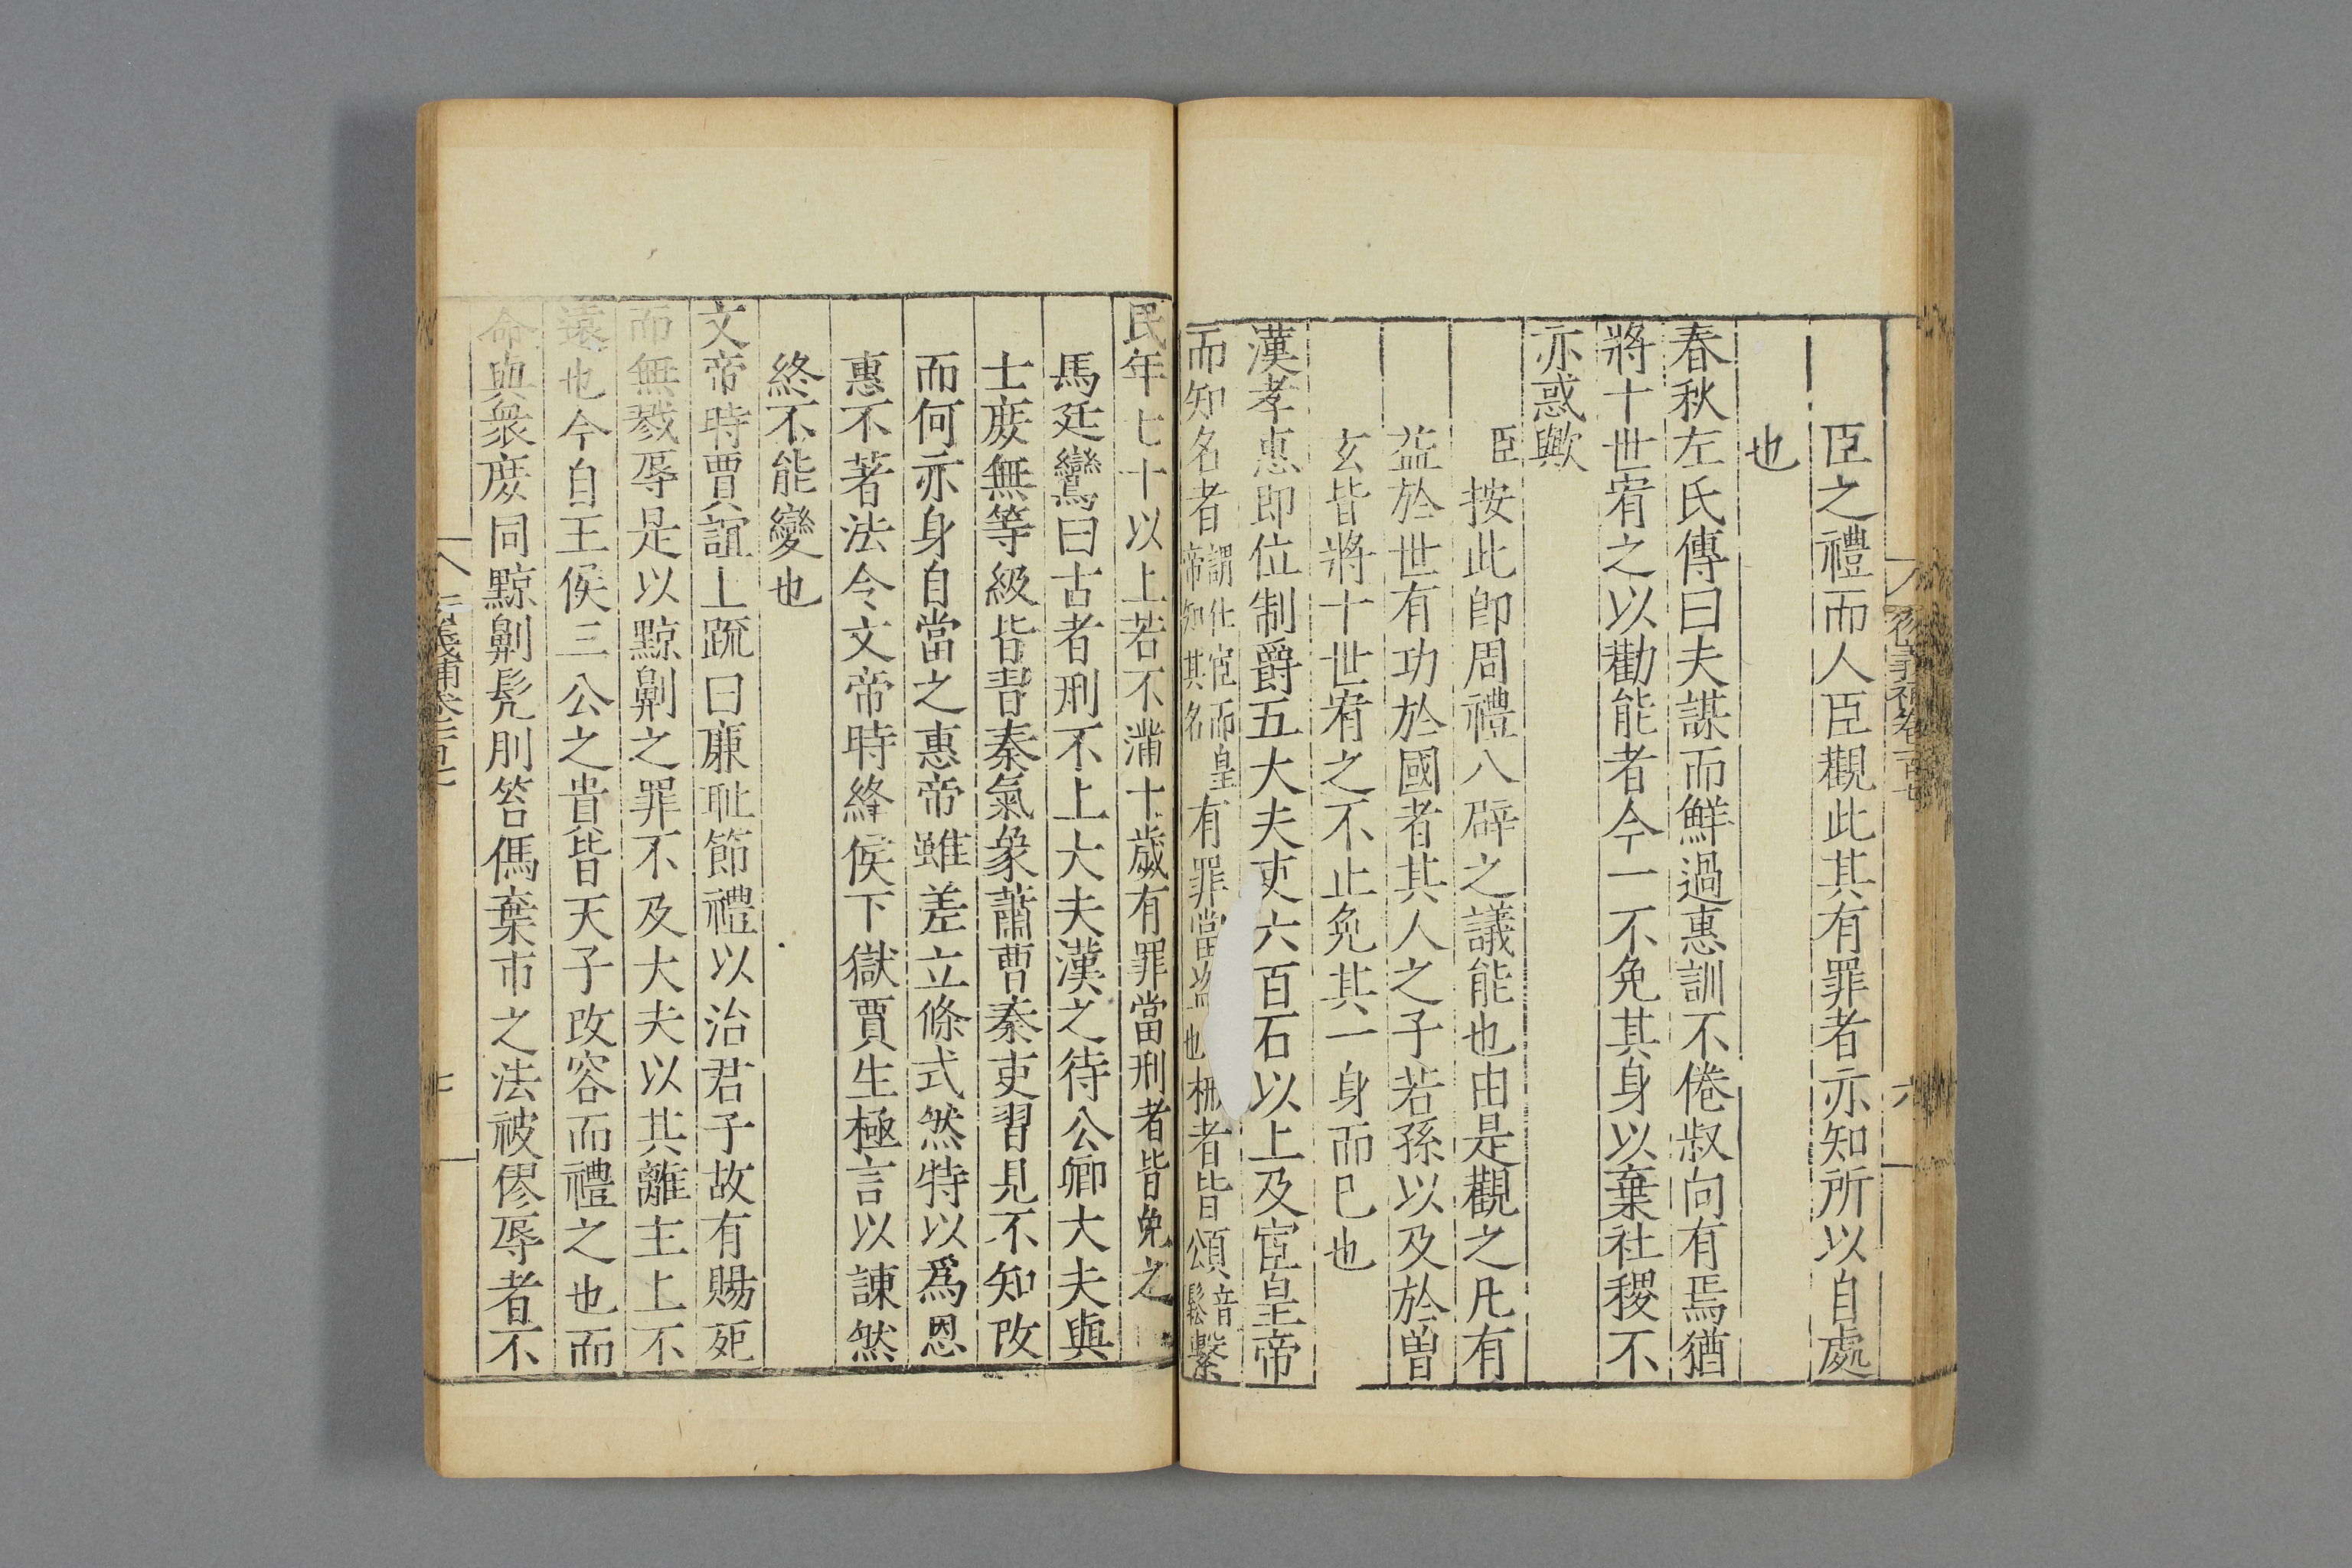 臣之禮而人臣觀此其有罪者亦知所以自處
也
春秋左氏傳曰夫謀而鮮過惠訓不倦叔向有焉猶
將十世宥之以勸能者今一不免其身以棄社稷不
亦惑歟
臣按此即周禮八辟之議能也由是觀之凡有
益於世有功於國者其人之子若孫以及於曾
玄皆將十世宥之不止免其一身而已也
漢孝惠即位制爵五大夫吏六百石以上及宦皇帝
而知名者謂仕宦而皇帝知其名有罪當盜也械者皆頌音鬆繫
民年七十以上若不滿十歲有罪當刑者皆免之
馬廷鸞曰古者刑不上大夫漢之待公卿大夫與
士庶無等級皆習秦氣象蕭曹秦吏習見不知改
而何亦身自當之惠帝雖差立條式然特以爲恩
惠不著法令文帝時絳侯下獄賈生極言以諫然
終不能變也
文帝時賈誼上疏曰廉耻節禮以治君子故有賜死
而無戮辱是以黥劓之罪不及大夫以其離主上不
遠也今自王侯三公之貴皆天子改容而禮之也而
命與衆庶同黥劓髡刖笞傌棄市之法被僇辱者不
七